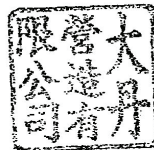 大丹
營造有
限公司